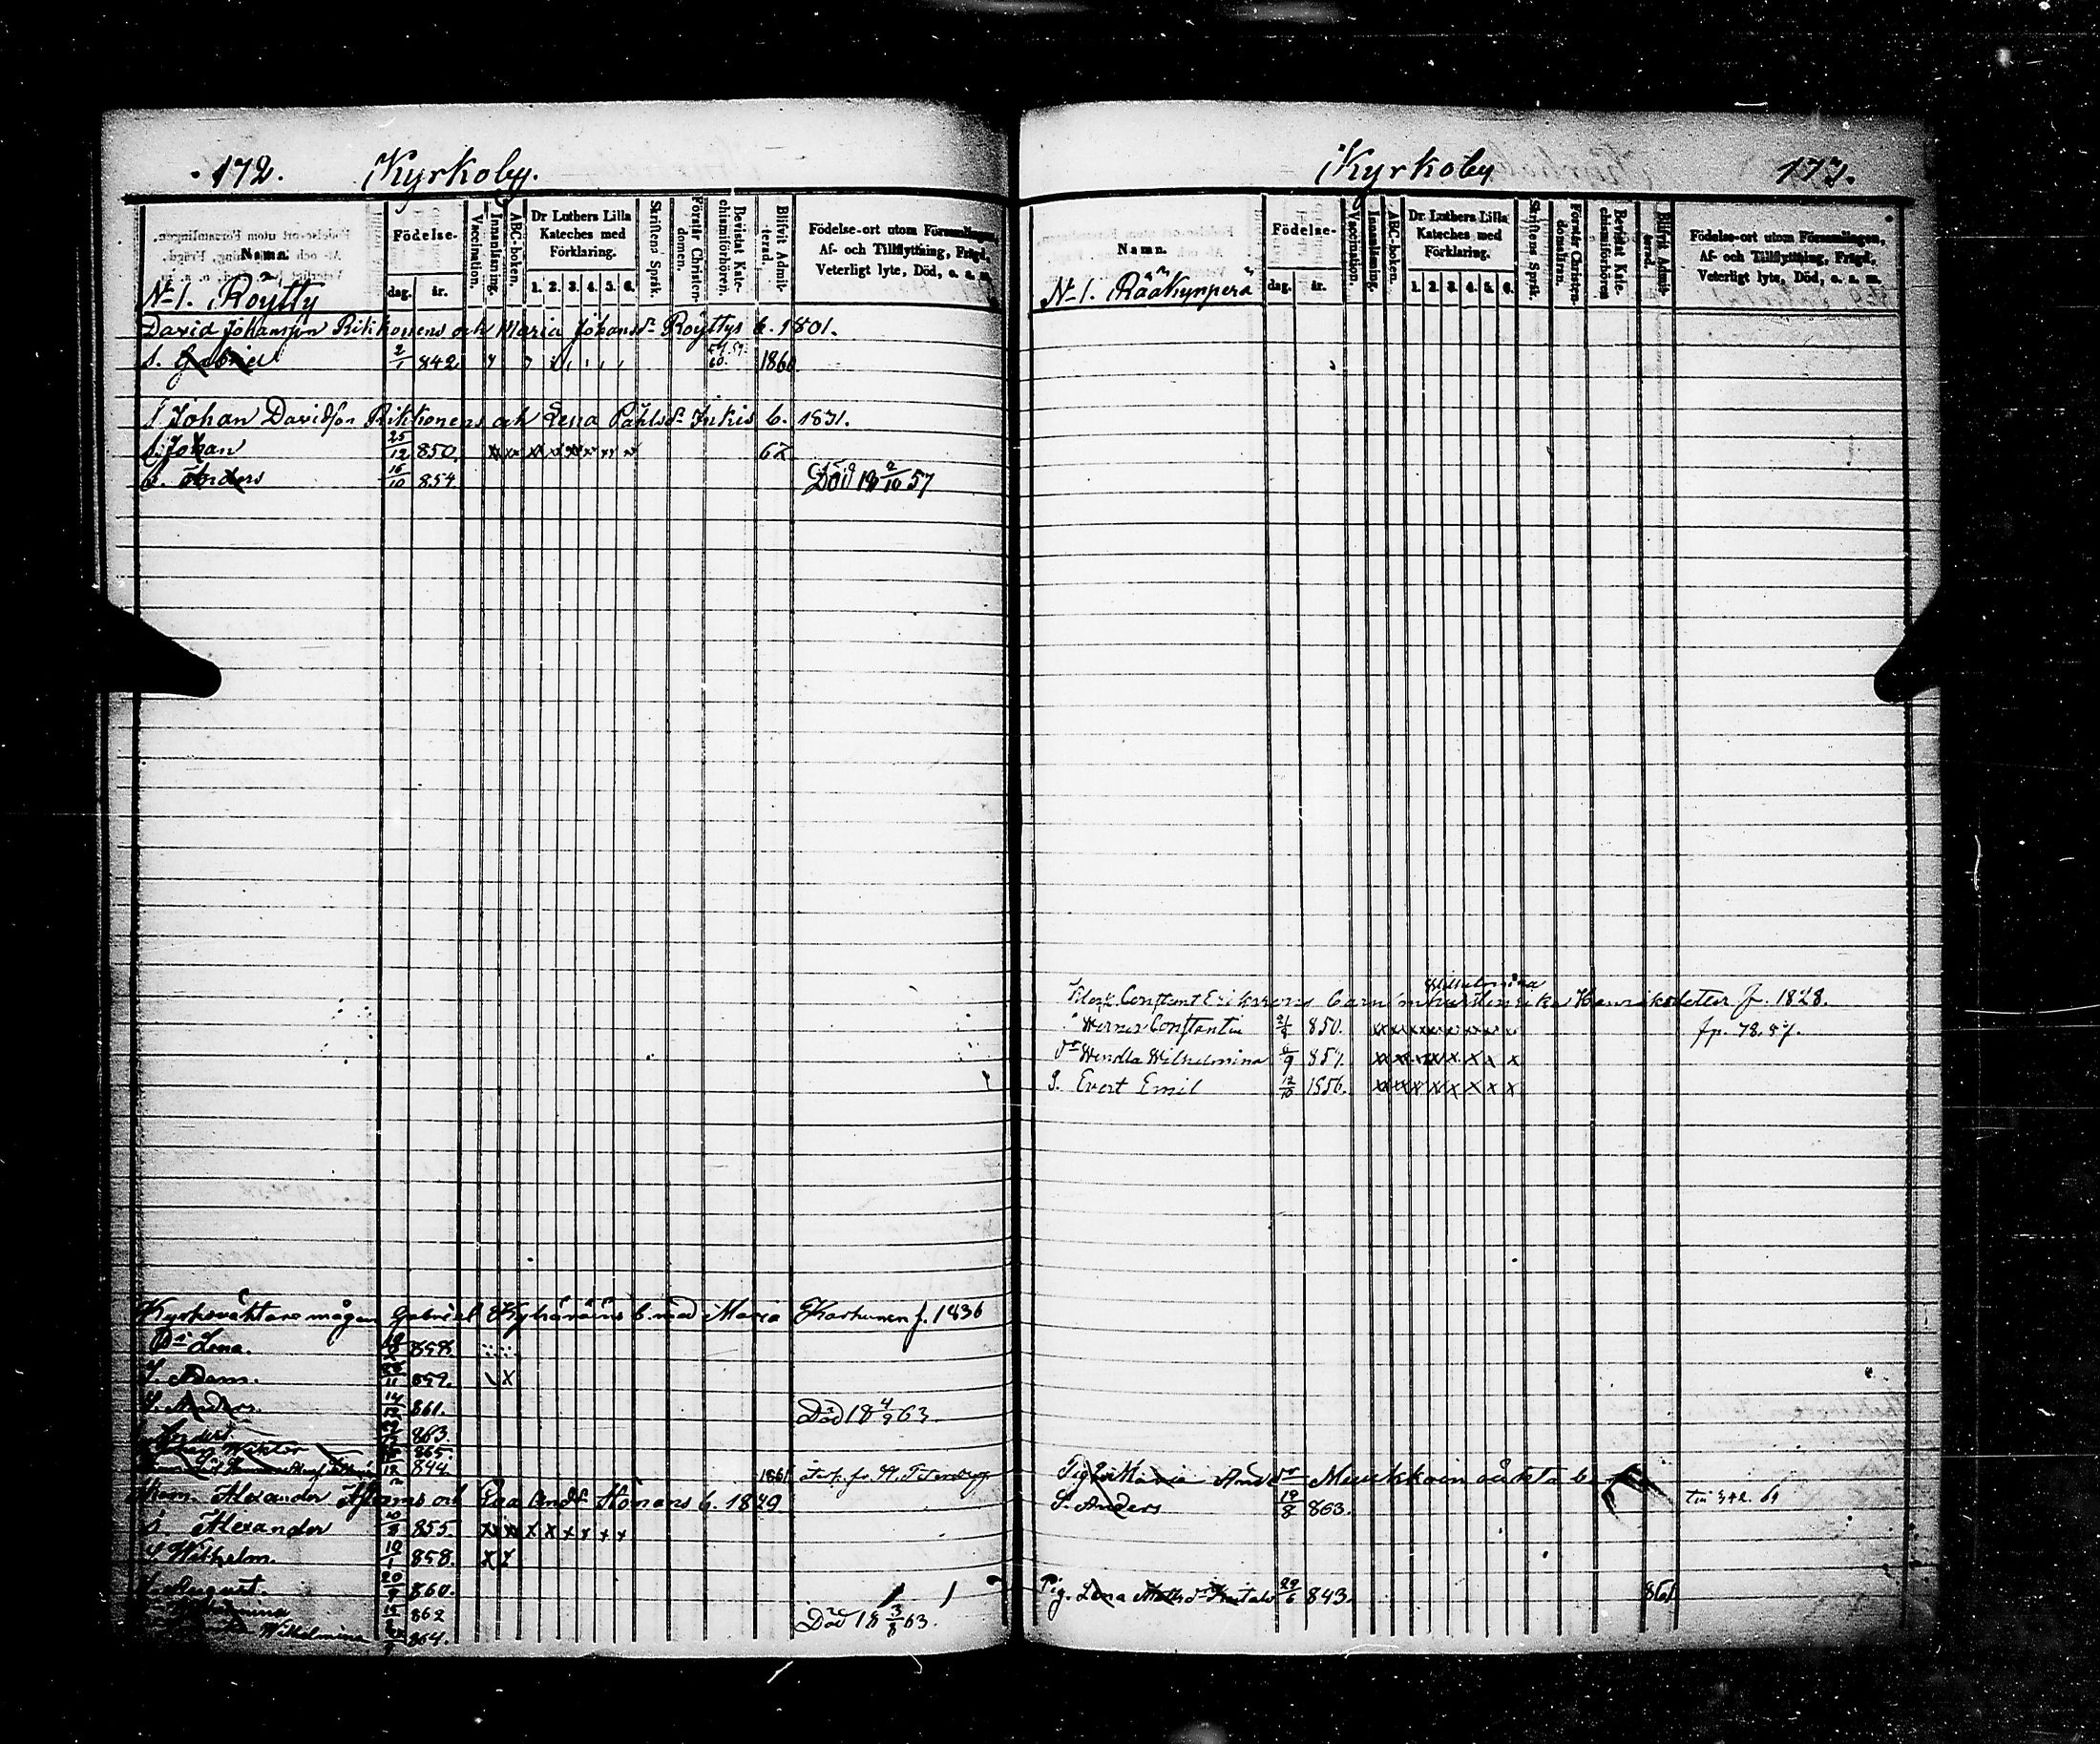 172. Kyrkoby.
Namn.
Födelse-
dag. år.
Vaccination.
Innanläsning.
ABC-boken.
Dr Luthers Lilla
Kateches med
Förklaring.
1. 2. 3. 4. 5. 6.
Skriftens Språk.
Förstår Christen-
domen.
Bevistat Kate-
chismiförhören.
Blifvit Admit-
terad.
Födelse-ort utom Församlingen,
Af- och Tillflyttning, Frägd,
Veterligt lyte, Död, o. a. m.
No 1. Röytty
David Johansson Rikkonens och Maria Johansdr Röyttys b. 1801.
s. Gabriel 2/1 842. 60. 1860
s Johan Davidson Rikkonens och Lena Påhlsdr Inkis b. 1831.
s. Johan 25/12 850. 67
s. Anders 16/10 854. Död 18 2/10 57
Kyrkoväktare mågen Gabriel b. med Maria Karhunen f. 1836
Dr Lena. 858.
S. Adam. 859. x
S. Anders. 861. Död 18 4/9 63.
863.
Wiktor 865
844. 1861
Alexander och Eva Andsdr b. 1829
s. Alexander 855. x x x x x x x x
S. Wilhelm. 858. x
S. August. 20/9 860.
862 Död 18 3/8 63.
Wilhelmina 864.
Kyrkoby 173.
Namn.
Födelse-
dag. år.
Vaccination.
Innanläsning.
ABC-boken.
Dr Luthers Lilla
Kateches med
Förklaring.
1. 2. 3. 4. 5. 6.
Skriftens Språk.
Förstår Christen-
domsläran.
Bevistat Kate-
chismiförhören
Blifvit Admit-
terad.
Födelse-ort utom Församlingen,
Af- och Tillflyttning, Frägd,
Veterligt lyte, Död, o. a. m.
No 1. Rääkynperä
Wilhelmina
Constant Erikssons barn Henriksdotter f. 1828.
s Werner Constantin 850. x x x x x x x x fp. 78. 57.
dr Wendla Wilhelmina 854. x x x x x x x x
S. Evert Emil 12/10 1856. x x x x x x x x
Pig. Maria Andsdr Muukkoin oäkta b.
S. Anders 19/8 863. 342. 64
Pig. Lena 29/6 843. 861